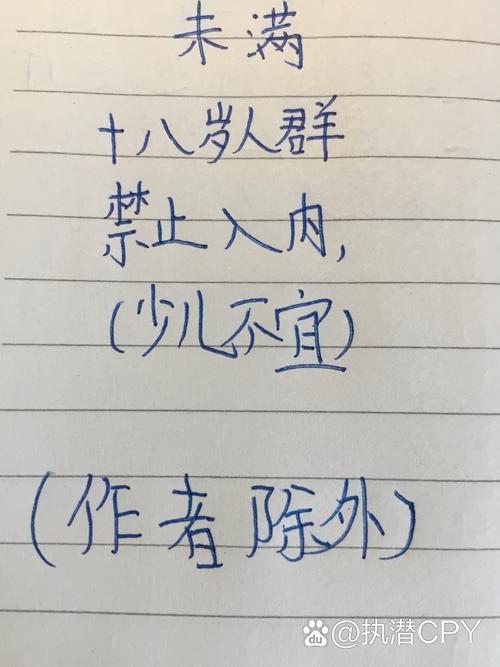 未满
十八岁人群
禁止入内,
(少儿不宜)
(作者除外)
Bai du @执潜CPY